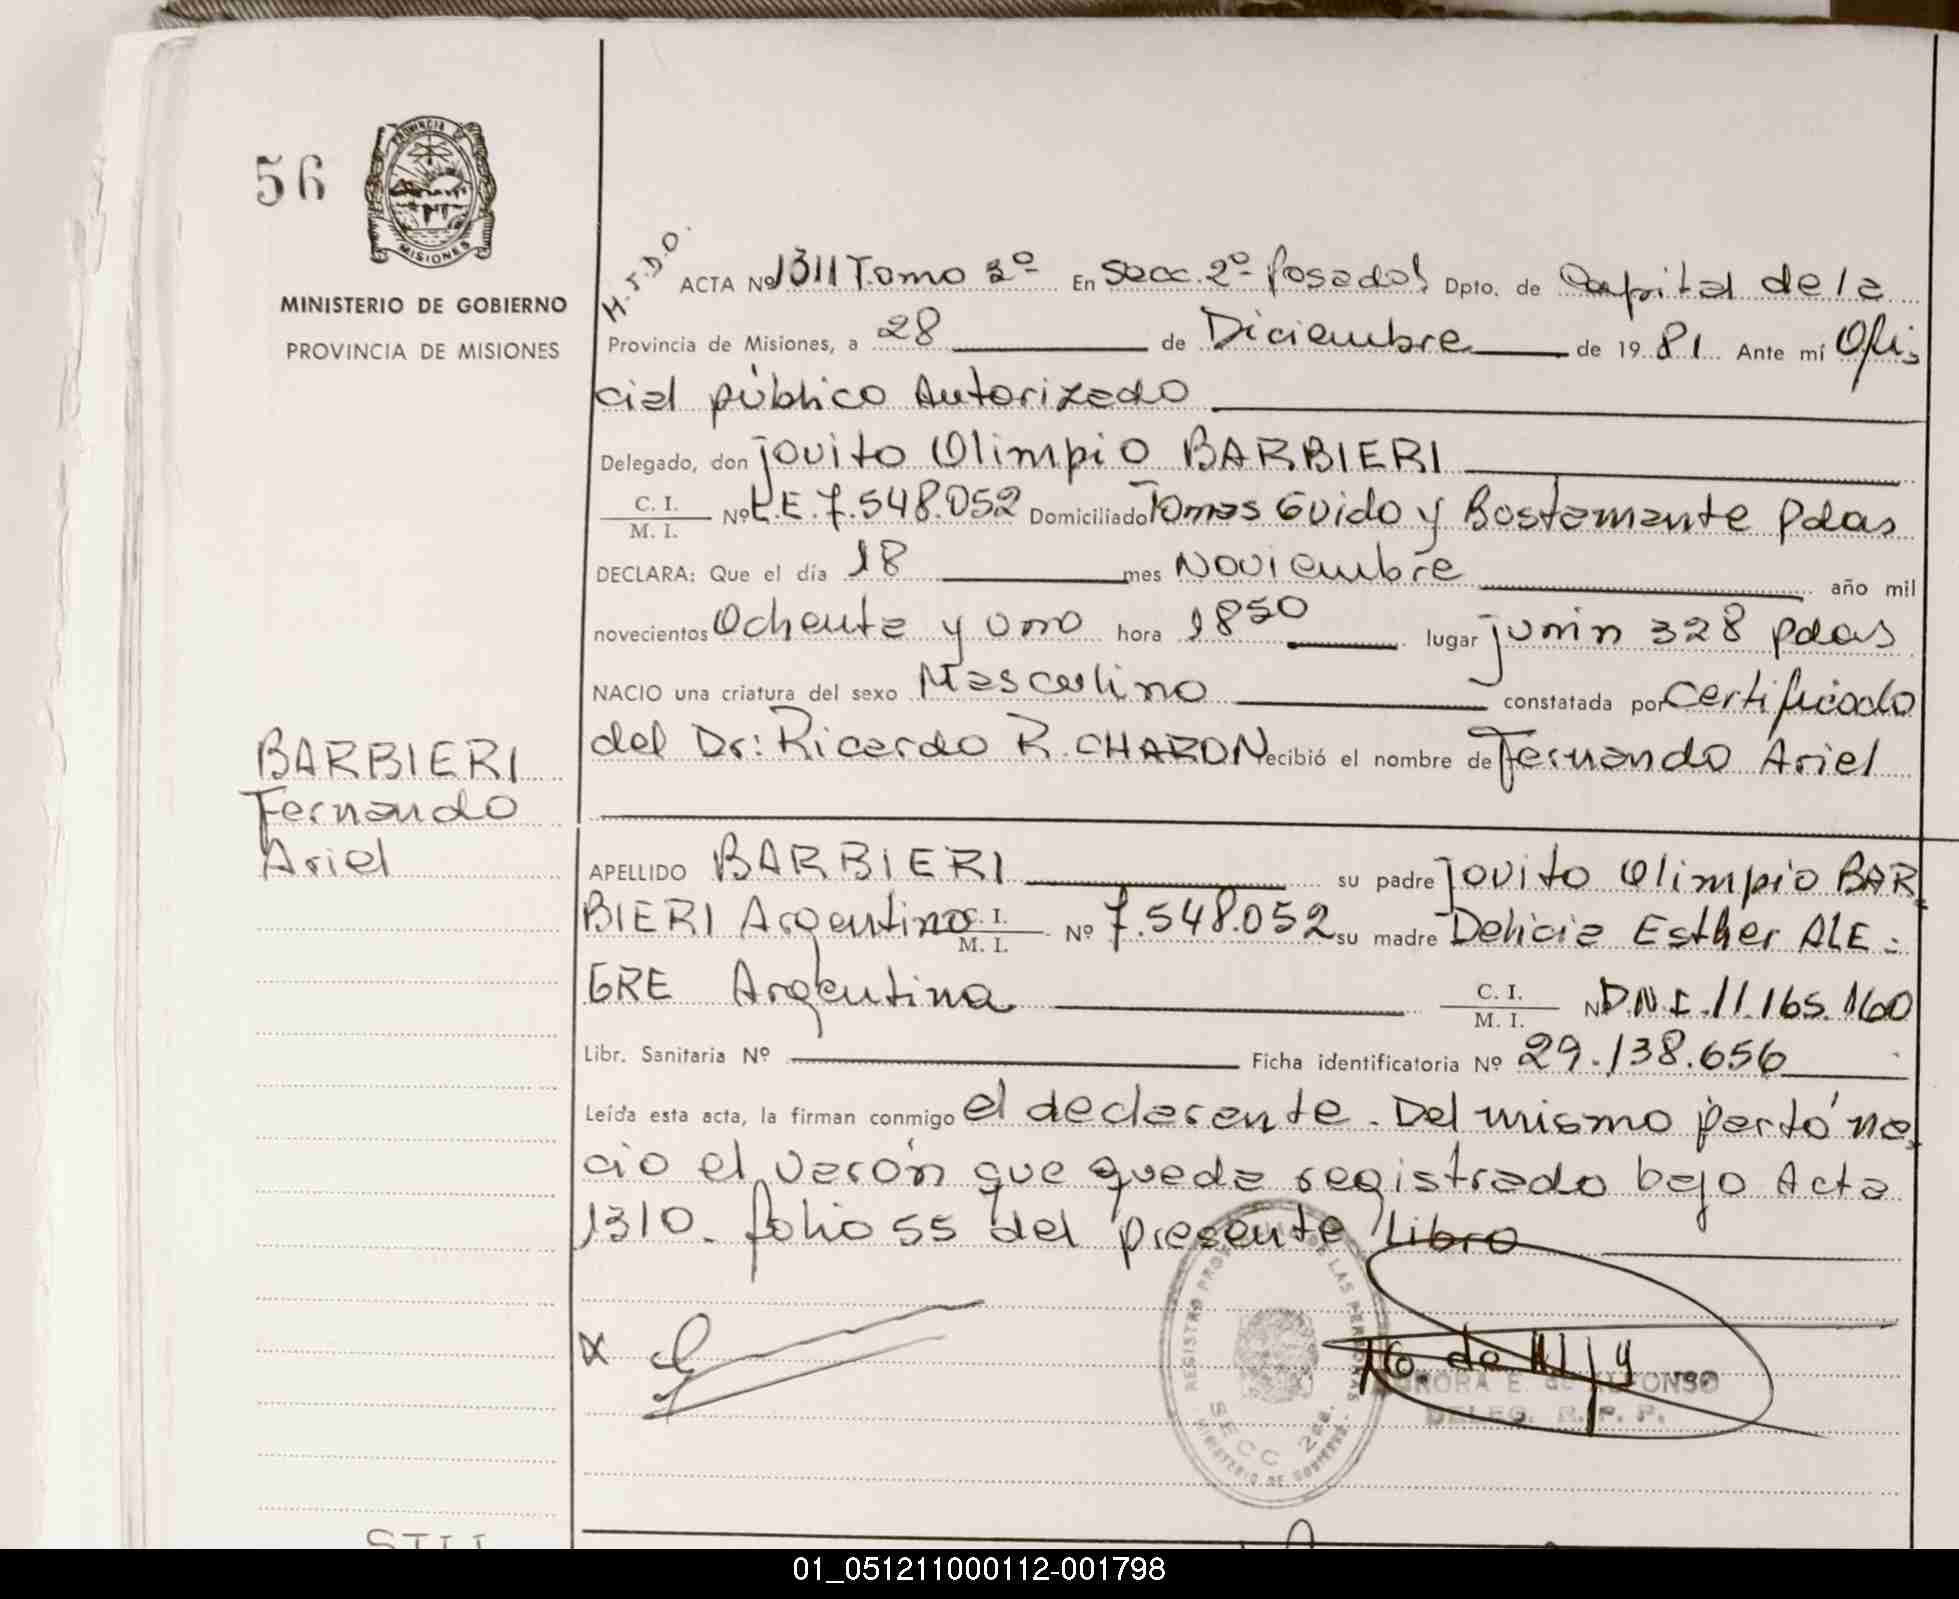 56
PROVINCIA DE
MISIONES
MINISTERIO DE GOBIERNO
PROVINCIA DE MISIONES
BARBIERI
Fernando
Ariel
H.T.D.O.
ACTA Nº 1311 Tomo 3º En Secc. 2º Posadas Dpto. de Capital de la
Provincia de Misiones, a 28 de Diciembre de 1981 Ante mí Ofi-
cial público Autorizado
Delegado, don Jovito Olimpio BARBIERI
C. I.
M. I. Nº L.E. 7.548.052 Domiciliado Tomas Guido y Bostamante Pdas
DECLARA: Que el día 18 mes Noviembre año mil
novecientos Ochenta y uno hora 1850 lugar Junin 328 Pdas
NACIO una criatura del sexo Masculino constatada por Certificado
del Dr: Ricardo R. CHARON ecibió el nombre de Fernando Ariel
APELLIDO BARBIERI su padre Jovito Olimpio BAR
BIERI Argentino C. I. M. I. Nº 7.548.052 su madre Delicia Esther ALE-
GRE Argentina C. I. M. I. N D.N.I. 11.165.160
Libr. Sanitaria Nº Ficha identificatoria Nº 29.138.656
Leída esta acta, la firman conmigo el declarente. Del mismo parto na
cio el varón que queda registrado bajo Acta
1310. folio 55 del presente Libro
REGISTRO PRO LAS PERSONAS
SECC 2da.
MINISTERIO DE GOBIERNO
E. de ALFONSO
DELEG. R. P. P.
01_051211000112-001798